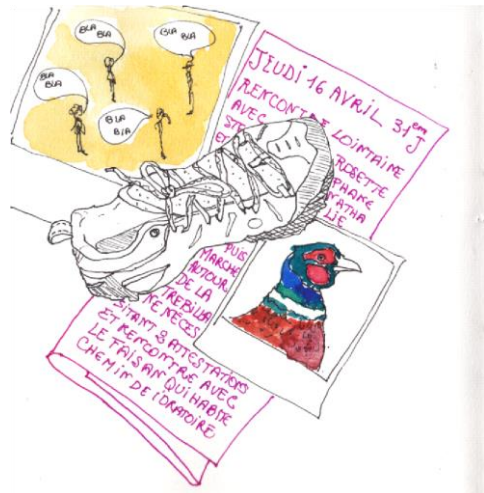 BLA
BLA
BLA
BLA
BLA
BLA
BLA
BLA
JEUDI 16 AVRIL 31em J
RENCONTRE LOINTAINE
AVEC ROSETTE
STE PHANE
ET NATHA
LIE
PUIS
MARCHE
AUTOUR
DE LA
TREBILLA
RE NECES
SITANT 8 ATTESTATIONS
ET RENCONTRE AVEC
LE FAISAN QUI HABITE
CHEMIN DE IDRATOIRE